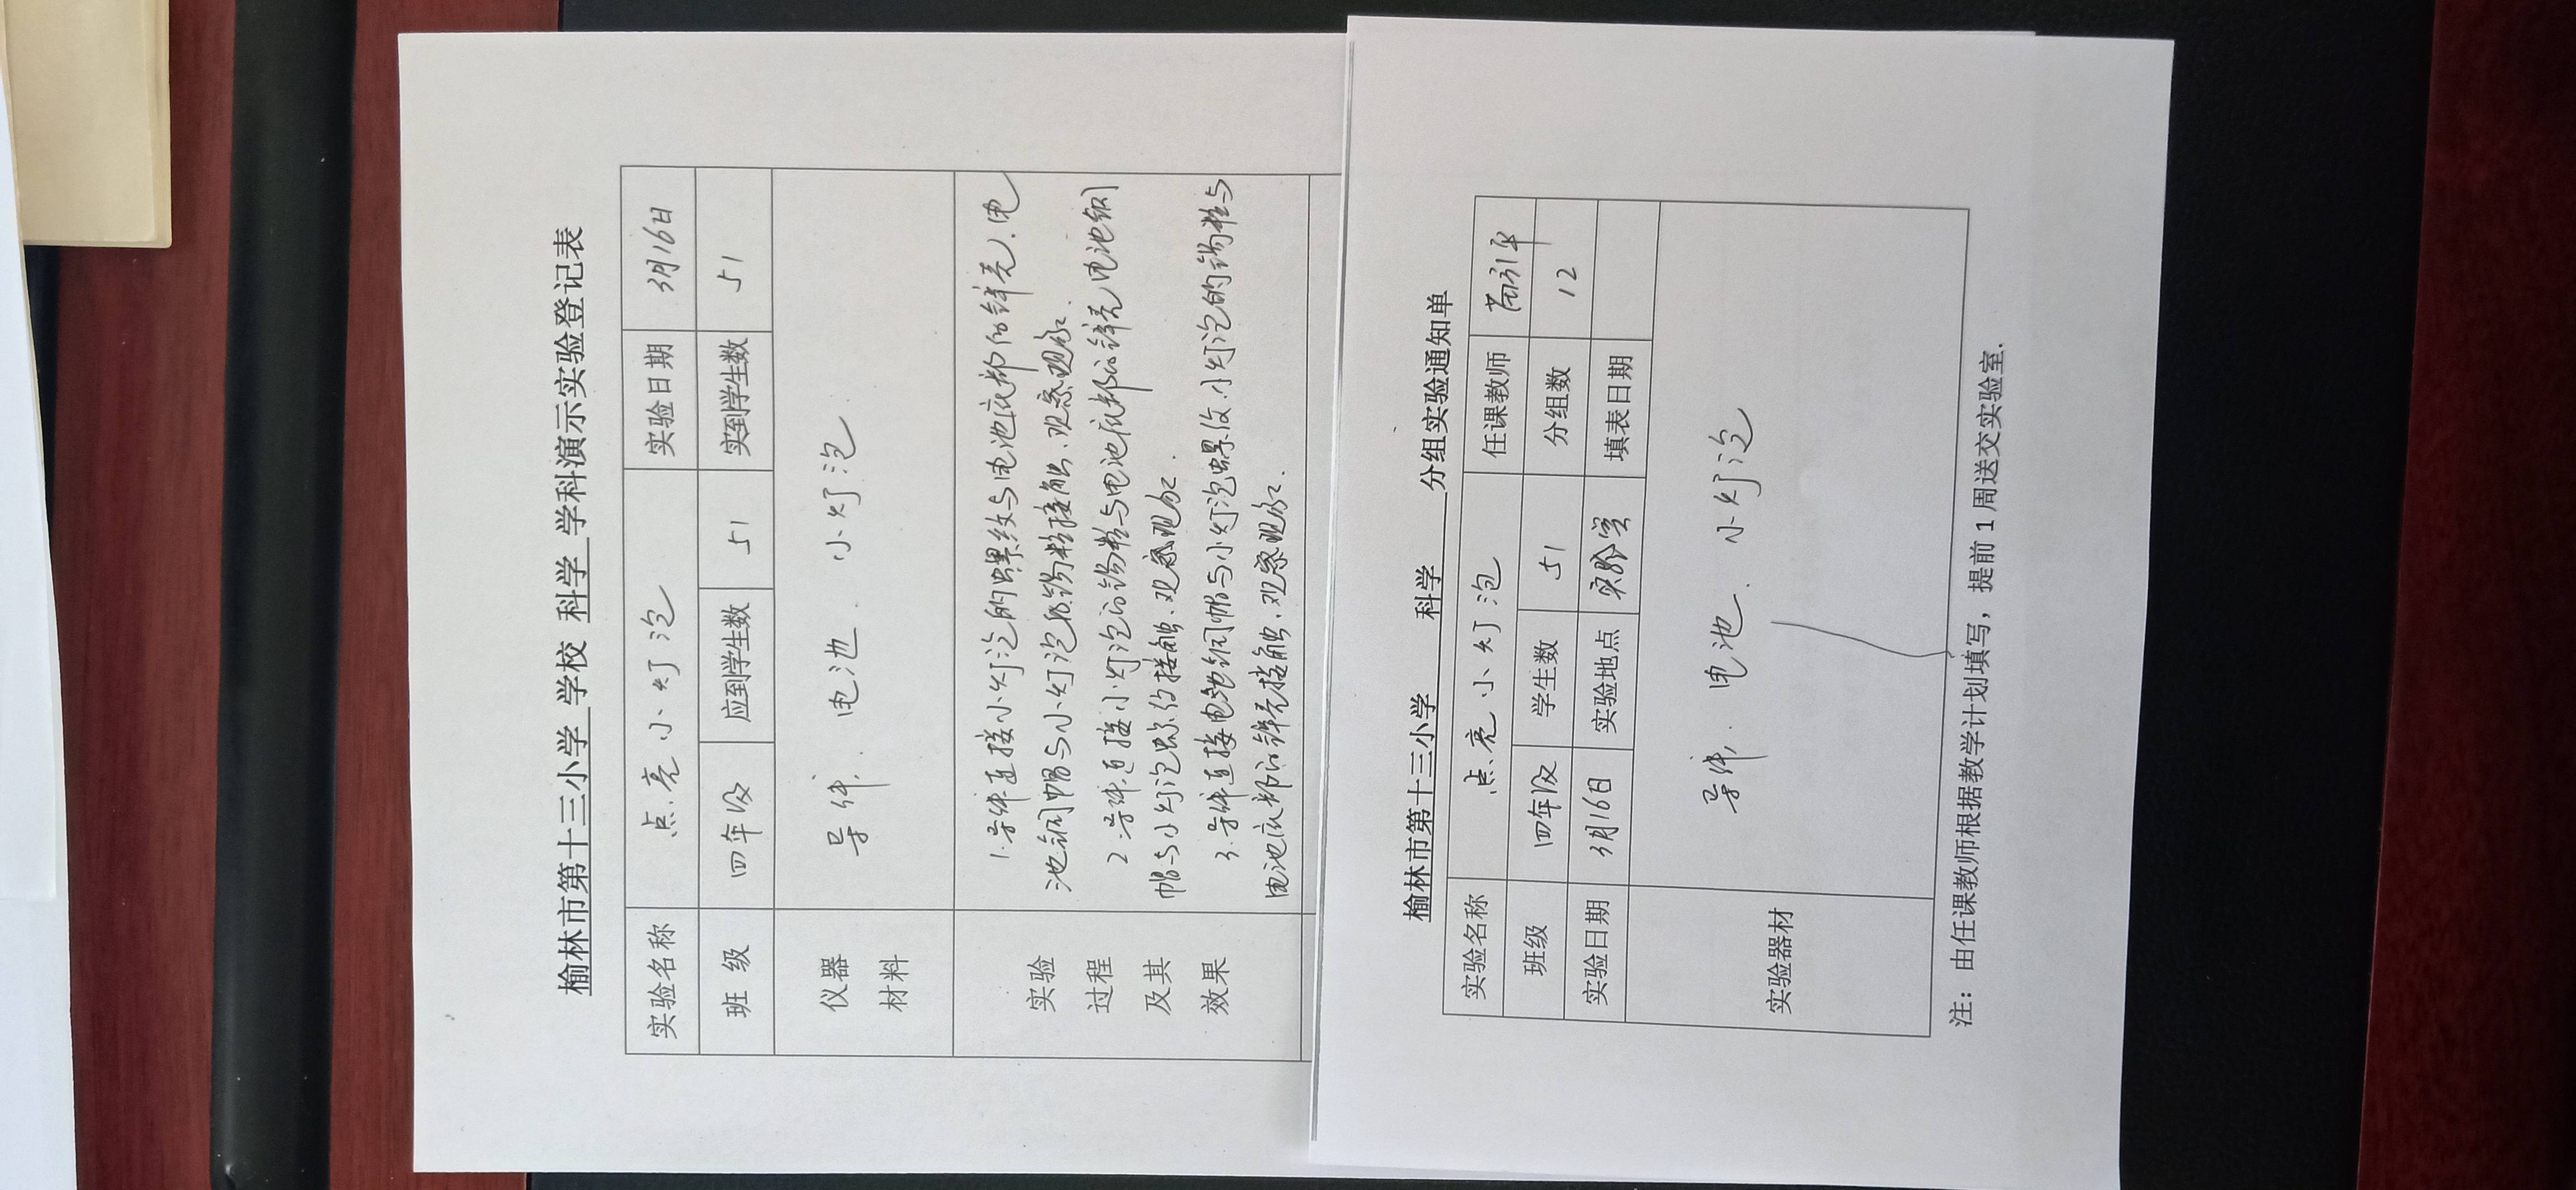 榆林市第十三小学 学校 科学 学科演示实验登记表
实验名称 点亮小灯泡 实验日期 3月16日
班 级 四年级 应到学生数 51 实到学生数 51
仪器
材料
导线. 电池. 小灯泡.
实验
过程
及其
效果
1.导线连接小灯泡的螺纹与电池底部的锌壳.电
池铜帽与小灯泡 锡粒接触.观察现象.
2.导线连接小灯泡的锡粒与电池底部的锌壳电池铜
帽与小灯泡螺纹接触.观察现象.
3.导线连接电池铜帽与小灯泡螺纹.小灯泡的锡粒与
电池底部的锌壳接触.观察现象.
榆林市第十三小学 科学 分组实验通知单
实验名称 点亮小灯泡 任课教师
班级 四年级 学生数 51 分组数 12
实验日期 3月16日 实验地点 实验室 填表日期
实验器材 导线. 电池. 小灯泡
注：由任课教师根据教学计划填写，提前1周送交实验室.